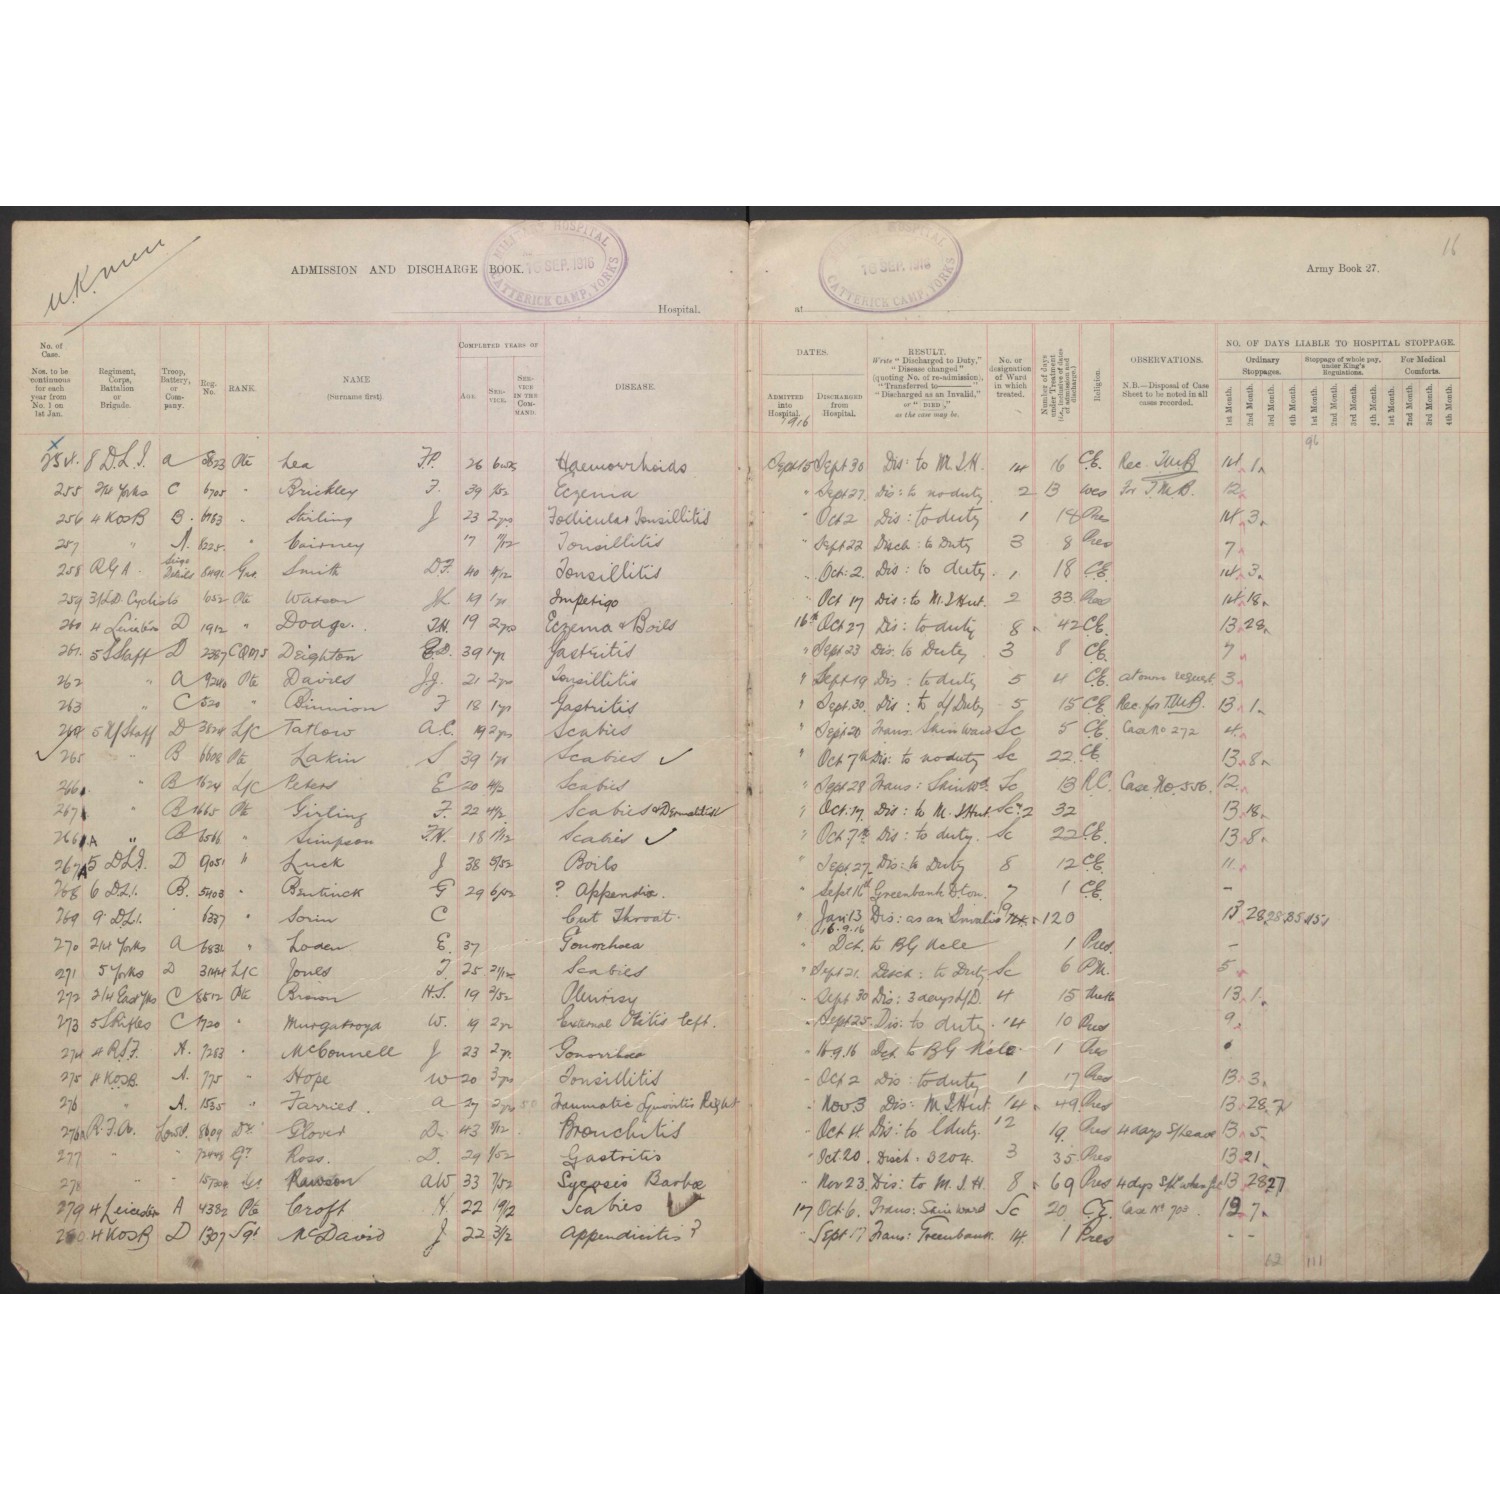 U.K. men
ADMISSION AND DISCHARGE BOOK.
MILITARY HOSPITAL
16 SEP. 1916
CATTERICK CAMP, YORKS
Hospital.
at
HOSPITAL
16 SEP. 1916
CATTERICK CAMP, YORKS
Army Book 27.
16
No. of Case. Nos. to be continuous for each year from No. 1 on 1st Jan.
Regiment, Corps, Battalion or Brigade.
Troop, Battery, or Company.
Reg. No.
RANK.
NAME (Surname first).
COMPLETED YEARS OF
AGE.
SERVICE.
SERVICE IN THE COMMAND.
DISEASE.
DATES.
ADMITTED into Hospital.
DISCHARGED from Hospital.
1916
RESULT. Write "Discharged to Duty," "Disease changed" (quoting No. of re-admission), "Transferred to——" "Discharged as an Invalid," or "DIED," as the case may be.
No. or designation of Ward in which treated.
Number of days under Treatment (i.e., inclusive of dates of admission and discharge.)
Religion.
OBSERVATIONS. N.B.—Disposal of Case Sheet to be noted in all cases recorded.
NO. OF DAYS LIABLE TO HOSPITAL STOPPAGE.
Ordinary Stoppages.
Stoppage of whole pay, under King's Regulations.
For Medical Comforts.
1st Month. 2nd Month. 3rd Month. 4th Month. 1st Month. 2nd Month. 3rd Month. 4th Month. 1st Month. 2nd Month. 3rd Month. 4th Month.
96
254. 8 D.L.I. a Pte Lea F.P. 26 Haemorrhoids Sept 15 Sept 30 Dis: to M.I.H. 14 16 C.E. Rec. T.M.B. 14 1
255 2/4 Yorks C 6705 " Brickley F. 39 1/52 Eczema " Sept 27. Dis: to no duty 2 13 Wes for T.M.B. 12
256 4 KOSB B. 6763 " Stirling J 23 2 yrs Follicular Tonsillitis " Oct 2 Dis: to duty 1 18 Pres 14 3
257 " A. " Cairney 17 7/12 Tonsillitis " Sept 22 Disch: to Duty 3 8 Pres 7
258 R.G.A. Gnr. Smith D.F. 40 Tonsillitis " Oct: 2. Dis: to duty. 1 18 C.E. 14 3
259 Cyclists 652 Pte Watson 19 1 yr Impetigo " Oct 17 Dis: to M.I Hut. 2 33 Pres 14 18
260 4 D 1912 " Dodge. F.H. 19 2 yrs Eczema & Boils 16th Oct 27 Dis: to duty 8 42 C.E. 13 28
261. 5 S Staff D 2387 CQMS Deighton E.D. 39 1 yr Gastritis " Sept 23 Dis. to Duty 3 8 C.E. 7
262 " A 9240 Pte Davies J.J. 21 2 yrs Tonsillitis " Sept 19 Dis: to duty 5 4 C.E. at own request 3
263 " C 520 " Binnion F 18 1 yr Gastritis " Sept. 30. Dis: to L/Duty 5 15 C.E Rec. for T.M.B. 13 1
264 5 N/Staff D L/C Tatlow A.C. 19 2 yrs Scabies " Sept 20 Trans: Skin Ward Sc 5 C.E. Case No 272 4
265 " B 6608 Pte Lakin S 39 1 yr Scabies ✓ " Oct 7th Dis: to no duty Sc 22 C.E. 13 8
266 " B 1624 L/C Peters E 20 Scabies " Sept 28 Trans: Skin Wd. Sc 13 R.C. Case No. 556. 12
267 " B 1665 Pte Girling F. 22 Scabies & Dermatitis " Oct. 17. Dis: to M.I Hut. Sc. 2 32 13 18
266A " B 6566 " Simpson F.H. 18 1/12 Scabies ✓ " Oct 7th Dis: to duty. Sc 22 C.E. 13 8
267A 5 D.L.I. D 9051 " Luck J 38 5/52 Boils " Sept. 27. Dis: to Duty 8 12 C.E. 11
268 6 D.L.I. B. 5403 " Bentinck G 29 6/52 ? Appendix. " Sept 16th Greenbank D.ton. 7 1 C.E. -
269 9 D.L.I. 6337 " Sorin C Cut Throat. " Jan 13 Dis: as an Invalid 9 120 13 28 28
270 2/4 Yorks A " Loden E. 37 Gonorrhoea " 16.9.16 Dch. to BG Ncle 1 Pres. -
271 5 Yorks D 3144 L/C Jones T. 25 Scabies " Sept 21. Disch: to Duty Sc 6 P.M. 5
272 2/4 East Yks C 8512 Pte Brown H.S. 19 Pleurisy " Sept 30 Dis: 3 days L/D. 4 15 Meth 13 1
273 5 S Rifles C 1720 " Murgatroyd W. 19 2 yr External Otitis left. " Sept 25. Dis: to duty. 14 10 Pres 9
274 4 R.S.F. A. 7263 " McConnell J 23 2 yr. Gonorrhoea " 16.9.16 Dch to B.G Ncle. 1 Pres
275 4 KOSB. A. 775 " Hope W 20 3 yrs Tonsillitis " Oct 2 Dis: to duty 1 17 Pres 13 3
276 " A. 1535 " Farries. A 27 2 yrs Traumatic Synovitis Right " Nov 3 Dis: M.I Hut. 14 49 Pres 13 28 7
276A R.F.A. 8609 Dr. Glover D. 43 Bronchitis " Oct 4. Dis: to duty. 12 19. Pres 4 days 13 5
277 " " Gr. Ross. D. 29 1/52 Gastritis " Oct. 20. Disch: B204. 3 35 Pres 13 21
278 " " Gr. Rawson AW 33 7/52 Sycosis Barbae " Nov 23. Dis: to M.I.H. 8 69 Pres 4 days 13 28 27
279 4 Leicester A 4382 Pte Croft H. 22 Scabies 17 Oct 6. Trans: Skin ward Sc 20 C.E. Case No 703. 12 7
280 4 KOSB D 1307 Sgt McDavid J 22 3/12 Appendicitis? " Sept 17 Trans: Greenbank. 14. 1 Pres - -
62 111